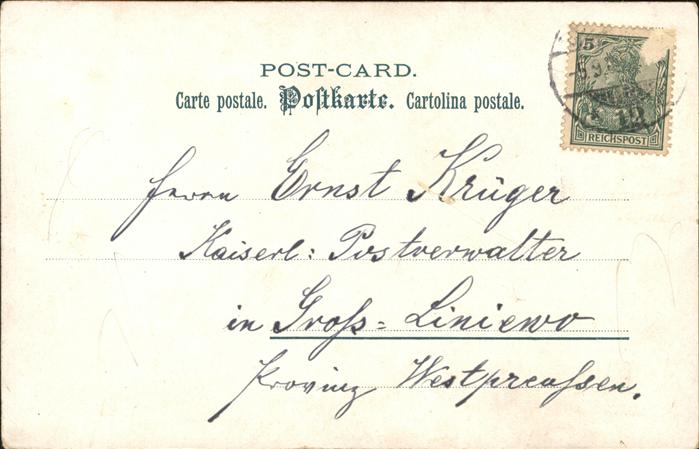 POST-CARD.
Carte postale. Postkarte. Cartolina postale.
5
REICHSPOST
Herrn Ernst Krüger
Kaiserl: Postverwalter
in Gross-Liniewo
Provinz Westpreussen.